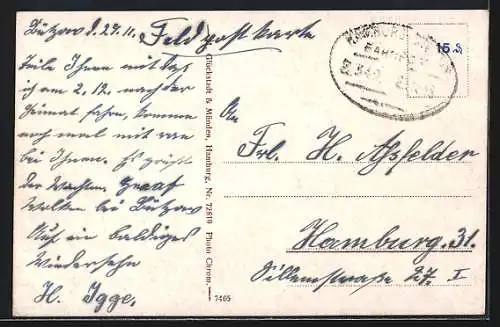 Bützow d. 29.11. Feldpostkarte
Teile Ihnen mit das
ich am 2.12. nach der
Heimat fahre, komme
noch mal mit
bei Ihnen. Es grüßt
der Wachtm. Graaf
Wolken bei Bützow
Auf ein baldiges
Wiedersehn
H. Igge.
Glückstadt & Münden, Hamburg, Nr. 72819 Photo Chrom.
7465
15
BAHNPOST
An
Frl. H. Ahsfelder
Hamburg. 31.
Sillemstraße 27. I